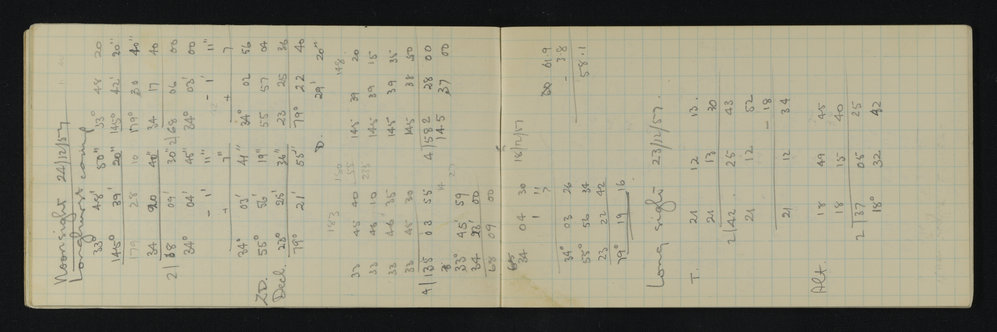 Noonsight 24/12/57
Longhurst camp
33° 48' 50" 33° 48 20
145° 39' 20" 145° 42' 20"
179 28 10 179° 30 40"
34 20 40" 34 17 40
2|68 09' 30" 2|68 06 00
34° 04' 45" 34° 03' 00
- 1' 11" - 1' 11"
+ 7" + 7
34° 03' 41" 34° 02 56
ZD. 55° 56' 19" 55 57 04
Decl. 23° 25' 36" 23 25 36
79° 21' 55" 79° 22 40
29' 20"
183
33 45 40 145 39 20
33 45' 10 145 39 15
33 46' 35 145 39 35
33 45 30 145 38 50
4|135 03 55 4|582 28 00
33° 45' 59 145 37 00
34 23' 00
68 09 00
34 04 30 18/12/57
1 11
7
34° 03 26
55° 56 34
23 22 42
79° 19 16
61.9
- 3.8
58.1
Long sight 23/12/57.
T. 21 12 13
21 13 30
2|42 25 43
21 12 52
- 18
21 12 34
Alt. 18 49 45
18 15 40
2|37 05 25
18° 32 42